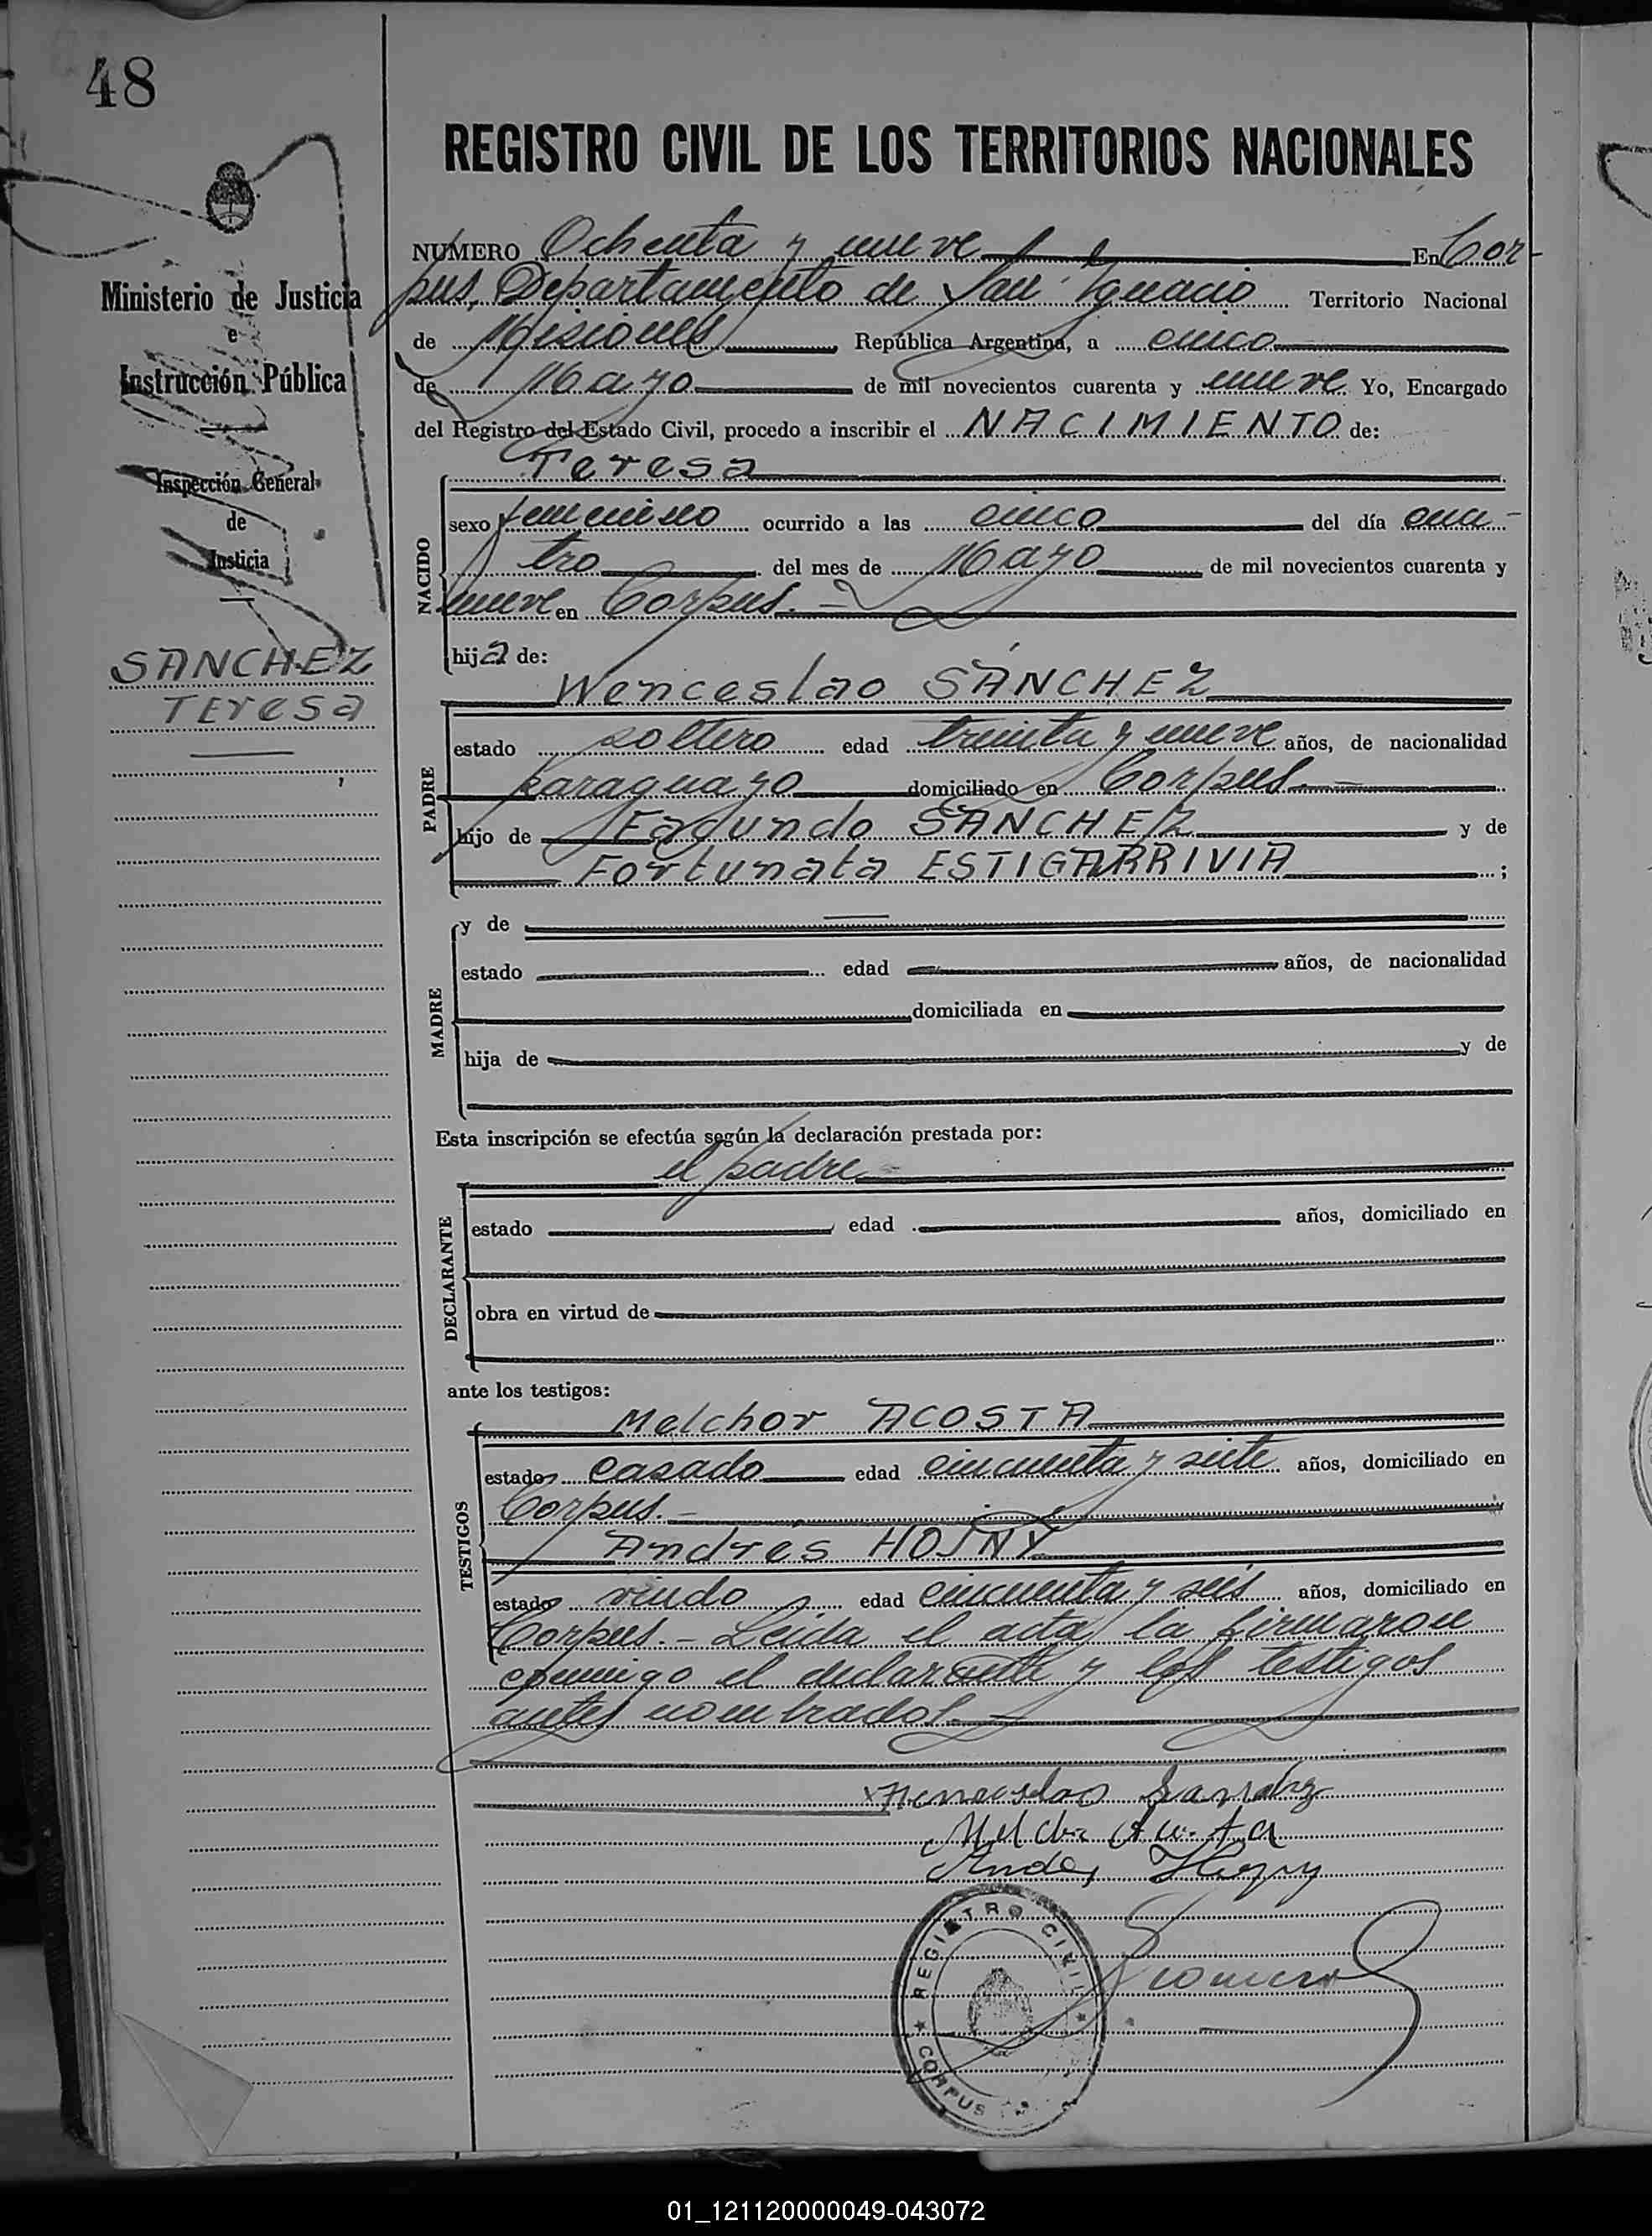 48
REGISTRO CIVIL DE LOS TERRITORIOS NACIONALES
Ministerio de Justicia
e
Instrucción Pública
Inspección General
de
Justicia
SANCHEZ
Teresa
NUMERO Ochenta y nueve En Cor-
pus, Departamento de San Ignacio Territorio Nacional
de Misiones República Argentina, a cinco
de Mayo de mil novecientos cuarenta y nueve Yo, Encargado
del Registro del Estado Civil, procedo a inscribir el NACIMIENTO de:
NACIDO
Teresa
sexo femenino ocurrido a las cinco del día cua-
tro del mes de Mayo de mil novecientos cuarenta y
nueve en Corpus.-
hija de:
PADRE
Wenceslao SÁNCHEZ
estado soltero edad treinta y nueve años, de nacionalidad
paraguayo domiciliado en Corpus.-
hijo de Facundo SANCHEZ y de
Fortunata ESTIGARRIVIA ;
MADRE
y de
estado edad años, de nacionalidad
domiciliada en
hija de y de
Esta inscripción se efectúa según la declaración prestada por:
DECLARANTE
el padre
estado edad años, domiciliado en
obra en virtud de
ante los testigos:
TESTIGOS
Melchor ACOSTA
estado casado edad cincuenta y siete años, domiciliado en
Corpus.-
Andrés HOJNY
estado viudo edad cincuenta y seis años, domiciliado en
Corpus.- Leida el acta, la firmaron
conmigo el declarante y los testigos
antes nombrados.-
Wenceslao Sanchez
Andres
REGISTRO CIVIL
CORPUS
01_121120000049-043072